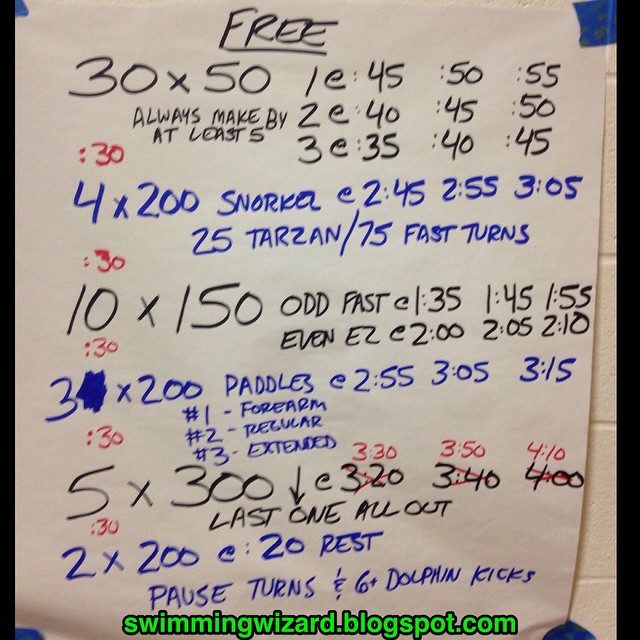 FREE
30 x 50 1 @ :45 :50 :55
ALWAYS MAKE BY 2 @ :40 :45 :50
AT LEAST 5 3 @ :35 :40 :45
:30
4 x 200 SNORKEL @ 2:45 2:55 3:05
25 TARZAN/75 FAST TURNS
:30
10 x 150 ODD FAST @ 1:35 1:45 1:55
EVEN EZ @ 2:00 2:05 2:10
:30
3 x 200 PADDLES @ 2:55 3:05 3:15
#1 - FOREARM
#2 - REGULAR
:30
#3 - EXTENDED
3:30 3:50 4:10
5 x 300 ↓ @ 3:20 3:40 4:00
LAST ONE ALL OUT
:30
2 x 200 @ :20 REST
PAUSE TURNS & 6+ DOLPHIN KICKS
swimmingwizard.blogspot.com